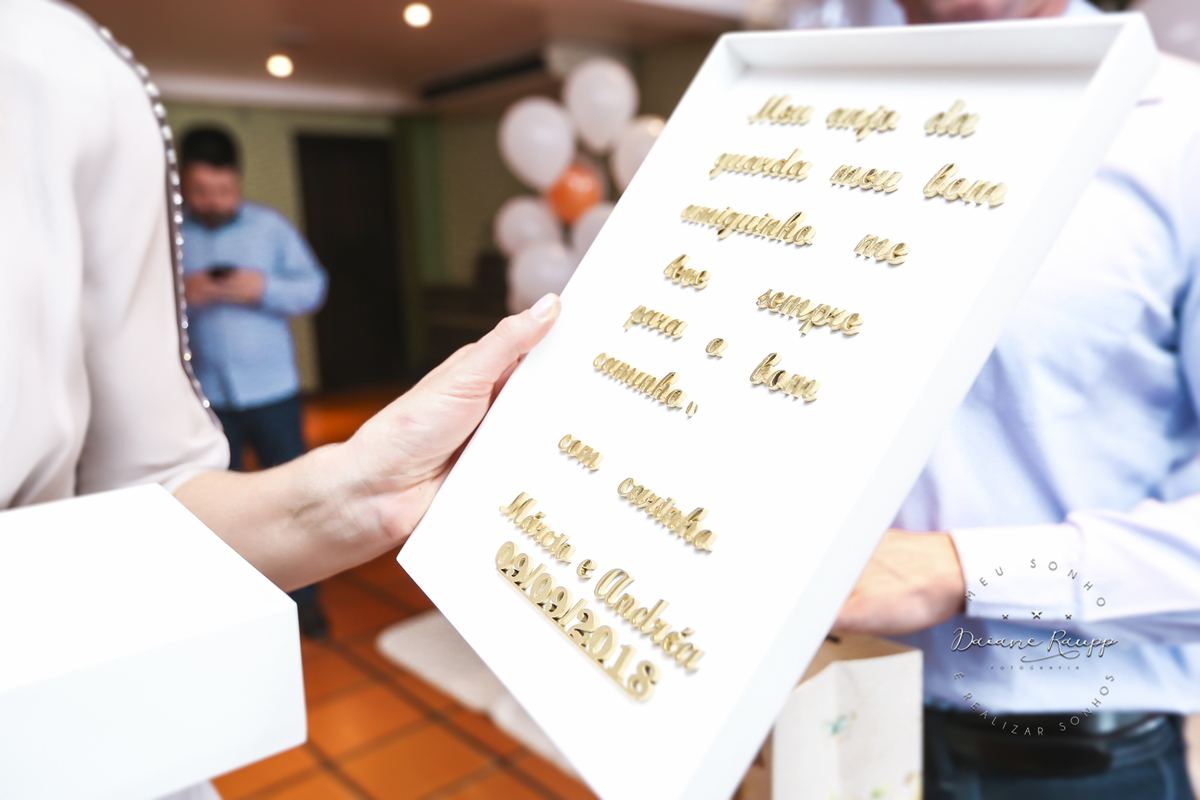 Meu anjo da
guarda meu bom
amiguinho me
leve sempre
para o bom
caminho"
com carinho
Márcio e Andréia
09/09/2018
MEU SONHO
Daiane Raupp
FOTOGRAFIA
É REALIZAR SONHOS